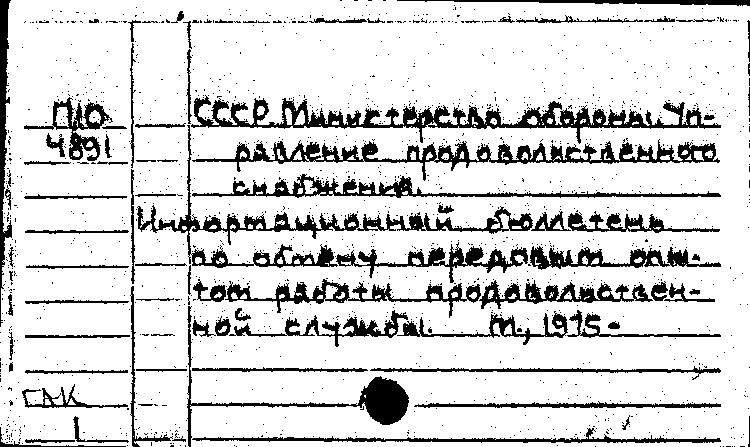 П10 СССР. Министерство обороны. Уп-
4891 равление продовольственного
снабжения.
Информационный бюллетень
по обмену передовым опы-
том работы продовольствен-
ной службы. М., 1975-
ГАК
1